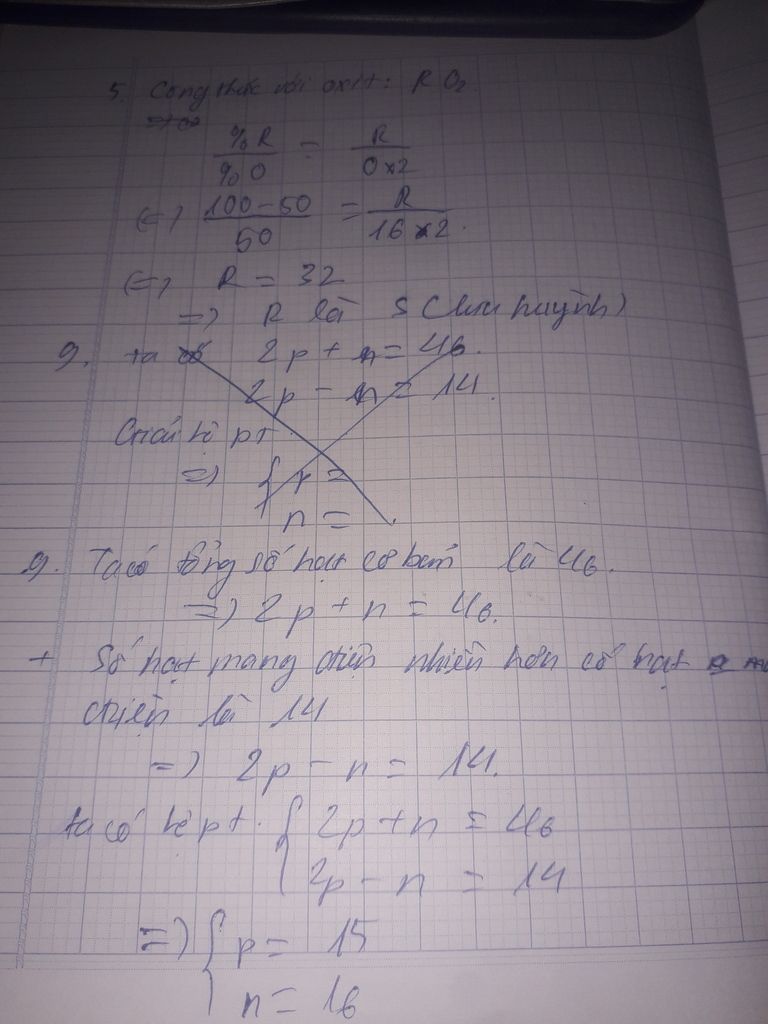 5. Công thức với oxit: RO₂
%R / %O = R / O×2
(=) 100-50 / 50 = R / 16×2.
(=) R = 32
=) R là S (lưu huỳnh)
9. ta có 2p + n = 46.
2p - n = 14.
Giải hệ pt
=) { p =
n =
9. Ta có tổng số hạt cơ bản là 46.
=) 2p + n = 46.
+ Số hạt mang điện nhiều hơn số hạt
điện là 14
=) 2p - n = 14.
ta có hệ pt. { 2p + n = 46
2p - n = 14
=) { p = 15
n = 16